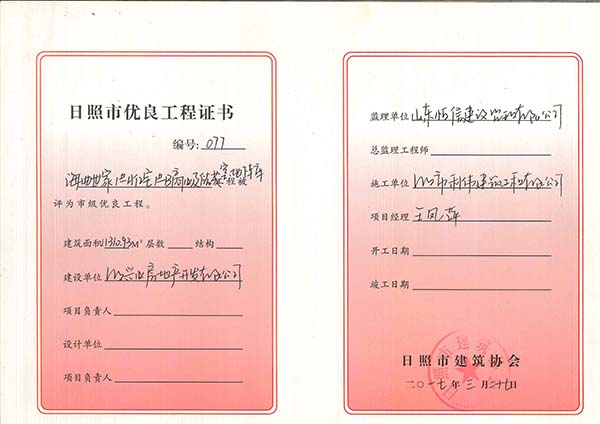 日照市优良工程证书
编号: 077
工程被
评为市级优良工程。
建筑面积1310.93M² 层数 结构
建设单位 兴业房地产开发有限公司
项目负责人
设计单位
项目负责人
监理单位 山东恒信建设监理有限公司
总监理工程师
施工单位 市利伟建设工程有限公司
项目经理 王凤萍
开工日期
竣工日期
日照市建筑协会
二〇一七年 三月二十七日